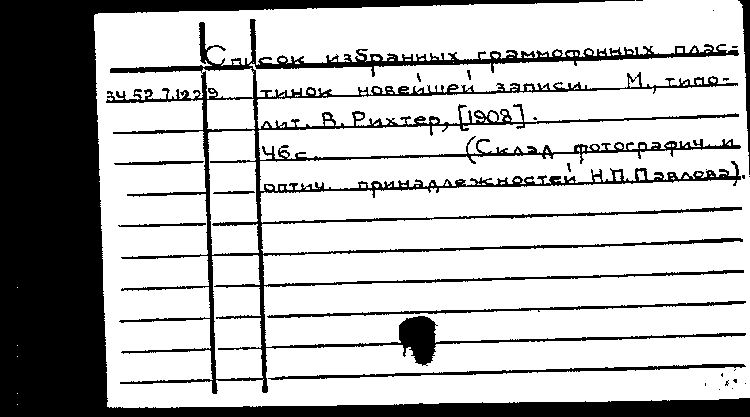 Список избранных граммофонных плас-
34.52.7.122 9. тинок новейшей записи. М., типо-
лит. В. Рихтер, [1908].
46 с. (Склад фотографич. и
оптич. принадлежностей Н.П.Павлова).